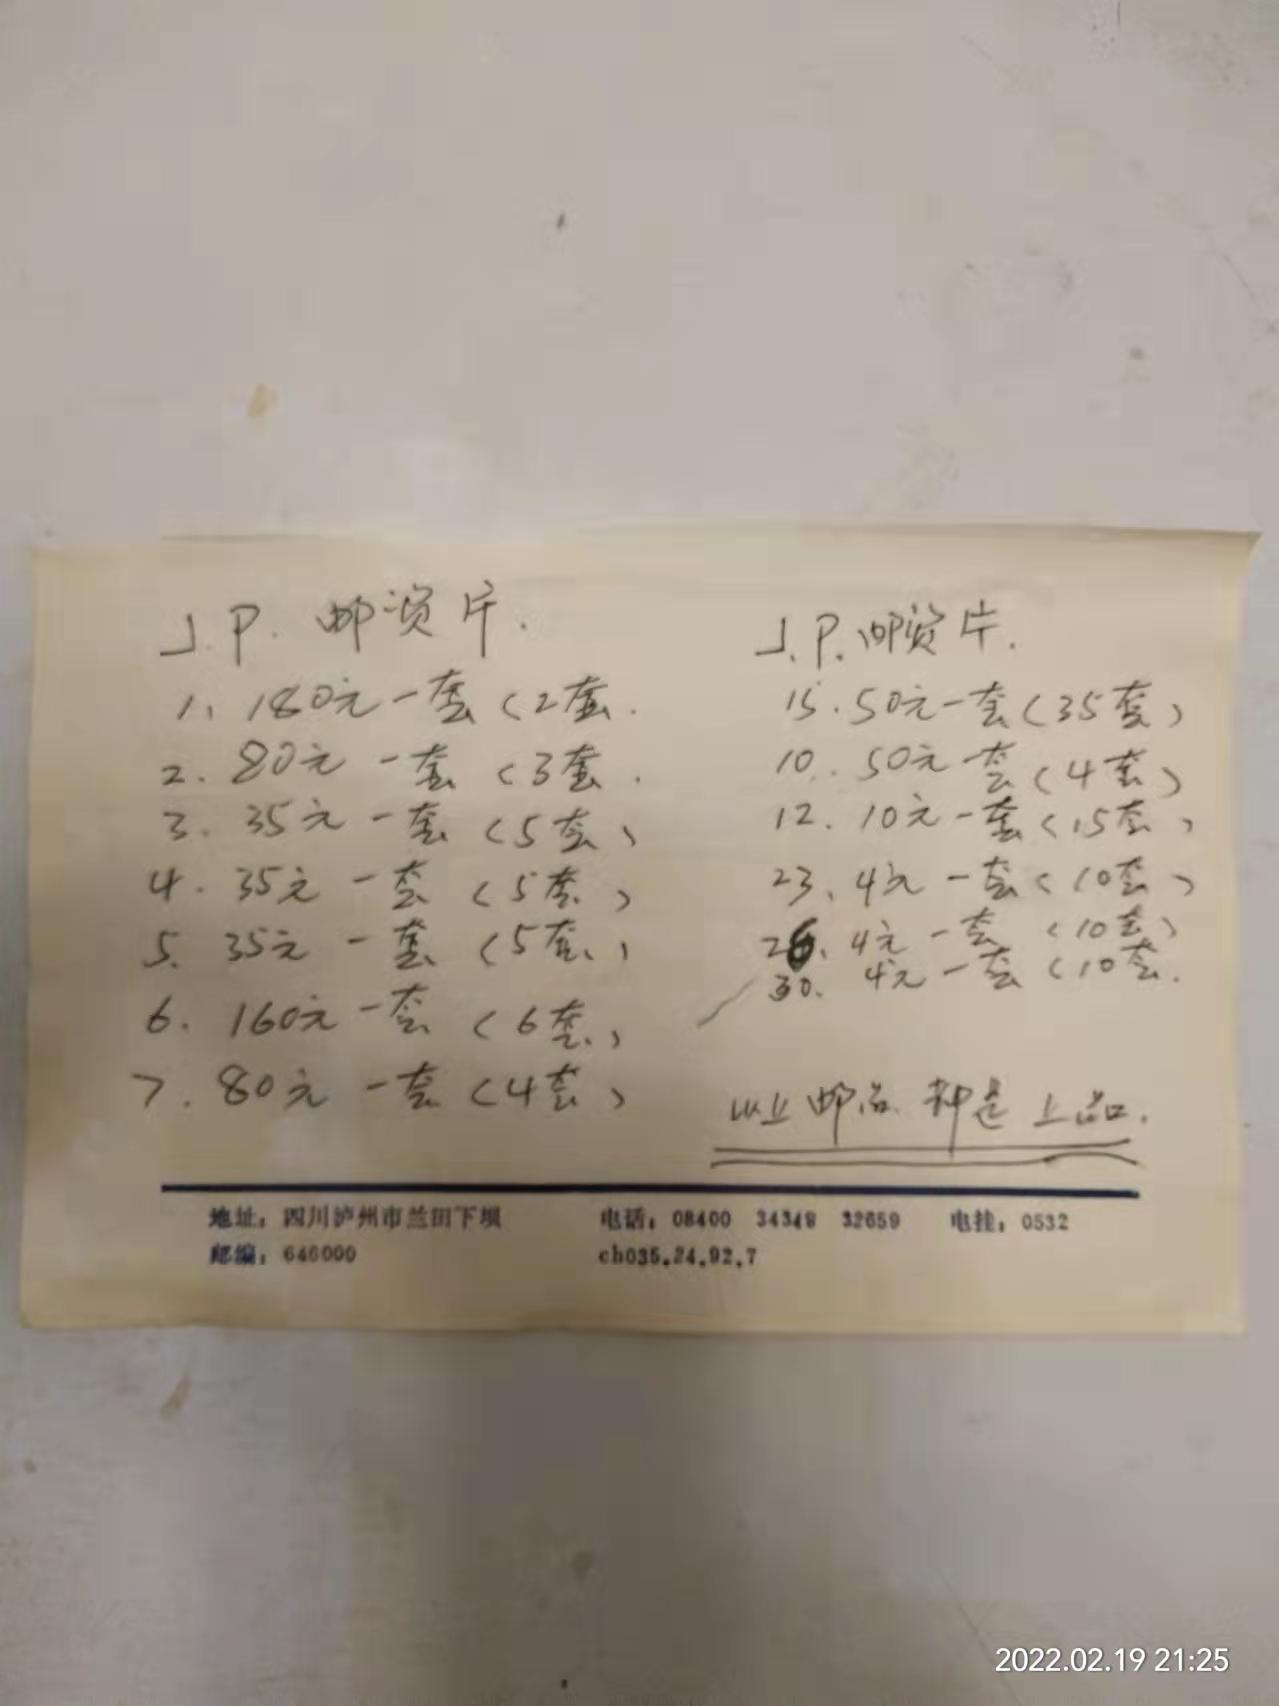 J.P. 邮资片.
1. 180元一套(2套.
2. 80元一套(3套.
3. 35元一套(5套)
4. 35元一套(5套)
5. 35元一套(5套)
6. 160元一套(6套)
7. 80元一套(4套)
J.P. 邮资片.
15. 50元一套(35套)
10. 50元一套(4套)
12. 10元一套(15套)
23. 4元一套(10套)
26. 4元一套(10套)
30. 4元一套(10套.
以上邮品都是上品.
地址：四川泸州市兰田下坝 电话：08400 34348 32659 电挂：0532
邮编：646000 ch035.24.92.7
2022.02.19 21:25